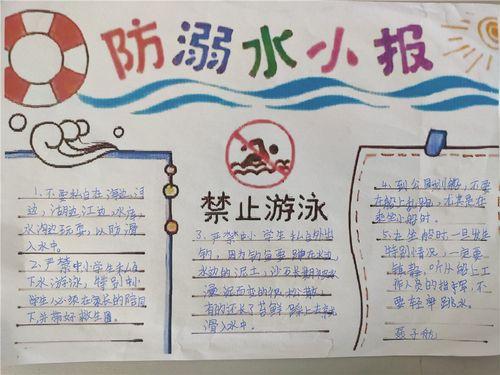 防溺水小报
1.不要私自在海边、河
边、湖边江边、水库
水沟边玩耍,以防滑
入水中。
2.严禁中小学生私自
下水游泳,特别中小
学生必须在家长的陪同
下并带好救生圈。
禁止游泳
3.严禁中小学生私自外出
钓鱼,因为钓鱼要蹲在水边
水边的泥土,沙石长期被水
浸泥而变的很松散,
有的还长了苔鲜,踩上去就
滑入水中。
4.到公园划船,不要
在船上乱跑,尤其是在
乘坐小船时。
5.在坐船时一旦发生
特别情况,一定要
镇静,听从船上工
作人员的指挥,不
要轻率跳水。